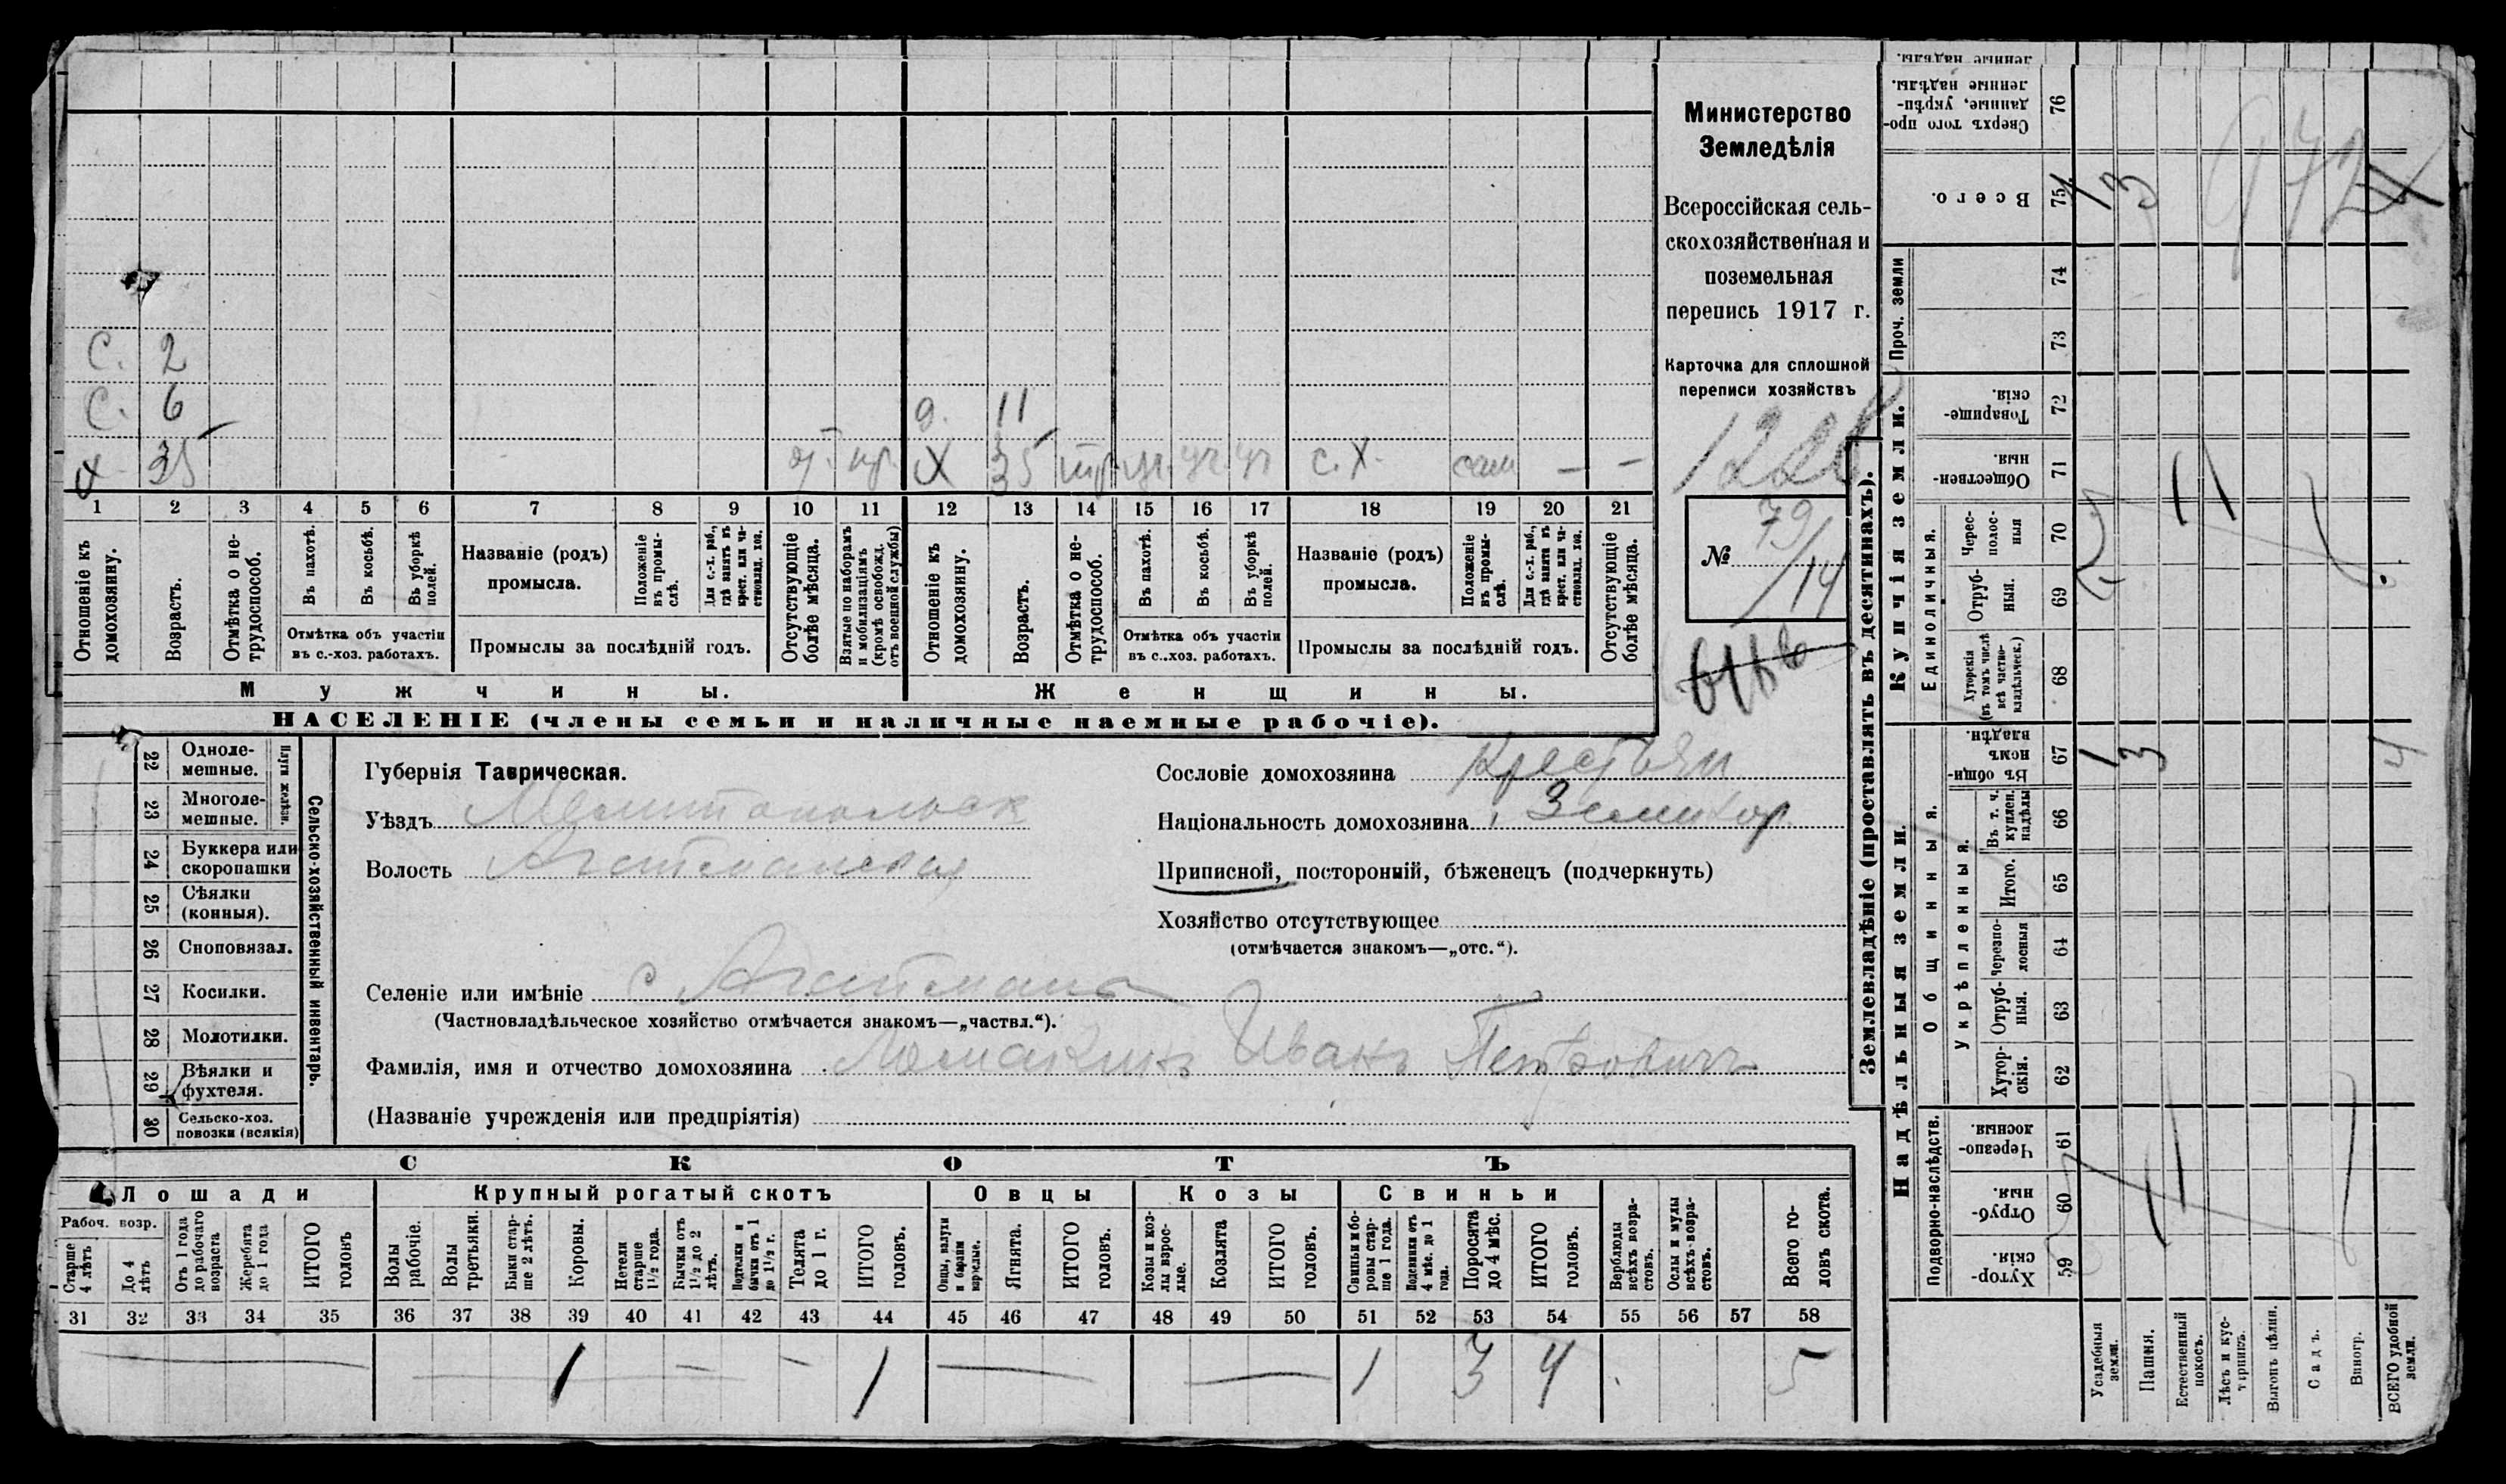 Министерство
Земледѣлія
Всероссійская сель-
скохозяйственная и
поземельная
перепись 1917 г.
Карточка для сплошной
переписи хозяйствъ
122
№ 79/14
С. 2
С. 6 д. 11
х 35 от. пр. х 35 тр уч уч уч с.х. сам — —
1 2 3 4 5 6 7 8 9 10 11 12 13 14 15 16 17 18 19 20 21
Отношеніе къ домохозяину.
Возрастъ.
Отмѣтка о не-трудоспособ.
Въ пахотѣ.
Въ косьбѣ.
Въ уборкѣ полей.
Отмѣтка объ участіи
въ с.-хоз. работахъ.
Названіе (родъ)
промысла.
Положеніе въ промы-слѣ.
Для с.-х. раб., гдѣ занятъ въ крест. или ча-стновлад. хоз.
Промыслы за послѣдній годъ.
Отсутствующіе болѣе мѣсяца.
Взятые по наборамъ и мобилизаціямъ (кромѣ освобожд. отъ военной службы)
Отношеніе къ домохозяину.
Возрастъ.
Отмѣтка о не-трудоспособ.
Въ пахотѣ.
Въ косьбѣ.
Въ уборкѣ полей.
Отмѣтка объ участіи
въ с..хоз. работахъ.
Названіе (родъ)
промысла.
Положеніе въ промы-слѣ.
Для с.-х. раб., гдѣ занята въ крест. или ча-стновлад. хоз.
Промыслы за послѣдній годъ.
Отсутствующіе болѣе мѣсяца.
Мужчины. Женщины.
НАСЕЛЕНІЕ (члены семьи и наличные наемные рабочіе).
Сельско-хозяйственный инвентарь.
Плуги желѣзн.
22 Одноле-мешные.
23 Многоле-мешные.
24 Буккера или скоропашки
25 Сѣялки (конныя).
26 Сноповязал.
27 Косилки.
28 Молотилки.
29 Вѣялки и фухтеля.
30 Сельско-хоз. повозки (всякія)
Губернія Таврическая.
Уѣздъ Мелитопольск
Волость Агайманская
Селеніе или имѣніе с Агайманъ
(Частновладѣльческое хозяйство отмѣчается знакомъ—„частвл.“).
Фамилія, имя и отчество домохозяина Ломакинъ Иванъ Петровичъ
(Названіе учрежденія или предпріятія)
Сословіе домохозяина Крестьян
Національность домохозяина
Приписной, посторонній, бѣженецъ (подчеркнуть)
Хозяйство отсутствующее
(отмѣчается знакомъ—„отс.“).
СКОТЪ
Лошади
Рабоч. возр.
Старше 4 лѣтъ
До 4 лѣтъ
Отъ 1 года до рабочаго возраста
Жеребята до 1 года
ИТОГО головъ
Крупный рогатый скотъ
Волы рабочіе.
Волы третьяки.
Быки стар-ше 2 лѣтъ.
Коровы.
Нетели старше 1½ года.
Бычки отъ 1½ до 2 лѣтъ.
Подтелки и бычки отъ 1 до 1½ г.
Телята до 1 г.
ИТОГО головъ.
Овцы
Овцы, валухи и бараны взрослые.
Ягнята.
ИТОГО головъ.
Козы
Козы и коз-лы взрос-лые.
Козлята
ИТОГО головъ.
Свиньи
Свиньи и бо-ровы стар-ше 1 года.
Подсвинки отъ 4 мѣс. до 1 года.
Поросята до 4 мѣс.
ИТОГО головъ.
Верблюды всѣхъ возра-стовъ.
Ослы и мулы всѣхъ возра-стовъ.
Всего го-ловъ скота.
31 32 33 34 35 36 37 38 39 40 41 42 43 44 45 46 47 48 49 50 51 52 53 54 55 56 57 58
— 1 — — 1 — — 1 3 4 5
Землевладѣніе (проставлять въ десятинахъ).
Купчія земли.
Проч. земли
Сверхъ того про-данные, укрѣп-ленные надѣлы. 76
Всего. 75 1 3 4
74
73
Товарище-скія. 72
Обществен-ныя. 71
Единоличныя.
Черес-полос-ныя 70
Отруб-ныя. 69
Хуторскія (въ томъ числѣ всѣ частно-владѣльческ.) 68
Надѣльныя земли.
Общинныя.
Въ общин-номъ владѣн. 67 1 3 4
Укрѣпленныя.
Въ т. ч. куплен. надѣлы 66
Итого. 65
Черезпо-лосныя 64
Отруб-ныя. 63
Хутор-скія. 62
Подворно-наслѣдств.
Черезпо-лосныя. 61
Отруб-ныя. 60
Хутор-скія. 59
Усадебныя земли.
Пашня.
Естественный покосъ.
Лѣсъ и кус-тарникъ.
Выгонъ цѣлин.
Садъ.
Виногр.
ВСЕГО удобной земли.
972